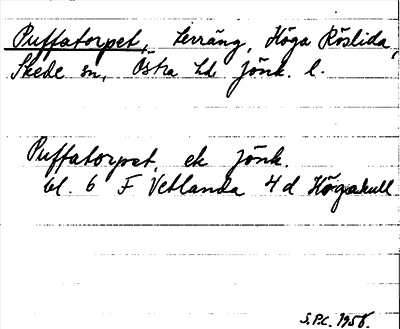 Puffatorpet, terräng, Höga Röslida,
Skede sn, Östra hd Jönk. l.
Puffatorpet ek Jönk.
bl. 6 F Vetlanda 4 d Högakull
S.P.C. 1958.